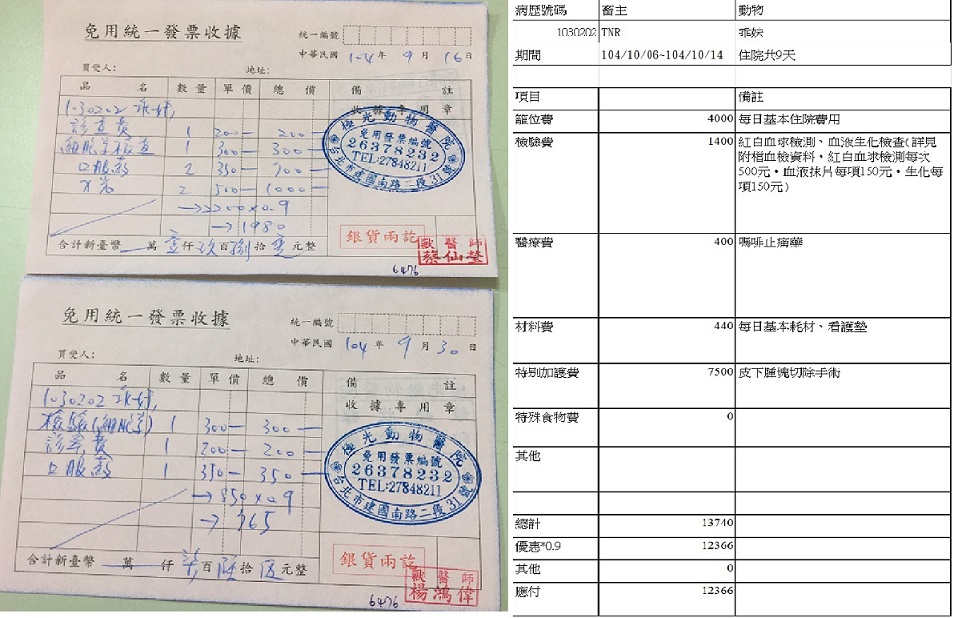 免用統一發票收據
統一編號
中華民國 104 年 9 月 16 日
買受人： 地址：
品 名 數 量 單 價 總 價 備 註
收 據 專 用 章
1030202 乖妹
診查費 1 200 200
細胞學檢查 1 300 300
口服藥 2 350 700
2 500 1000
→ 2200×0.9
→ 1980
極光動物醫院
免用發票編號
26378232
TEL:27848211
台北市建國南路二段31號
合計新臺幣 萬 壹仟 玖百 捌拾 元整
銀貨兩訖
獸醫師
蔡仙瑩
6476
免用統一發票收據
統一編號
中華民國 104 年 9 月 30 日
買受人： 地址：
品 名 數 量 單 價 總 價 備 註
收 據 專 用 章
1030202 乖妹
檢驗(細胞學) 1 300 300
診察費 1 200 200
口服藥 1 350 350
→ 850×0.9
→ 765
極光動物醫院
免用發票編號
26378232
TEL:27848211
台北市建國南路二段31號
合計新臺幣 萬 仟 柒百 陸拾 伍元整
銀貨兩訖
獸醫師
楊鴻偉
6476
病歷號碼 畜主 動物
1030202 TNR 乖妹
期間 104/10/06~104/10/14 住院共9天
項目 備註
籠位費 4000 每日基本住院費用
檢驗費 1400 紅白血球檢測、血液生化檢查(詳見
附檔血檢資料，紅白血球檢測每次
500元，血液抹片每項150元，生化每
項150元)
醫療費 400 嗎啡止痛藥
材料費 440 每日基本耗材、看護墊
特別加護費 7500 皮下腫塊切除手術
特殊食物費 0
其他
總計 13740
優惠*0.9 12366
其他 0
應付 12366